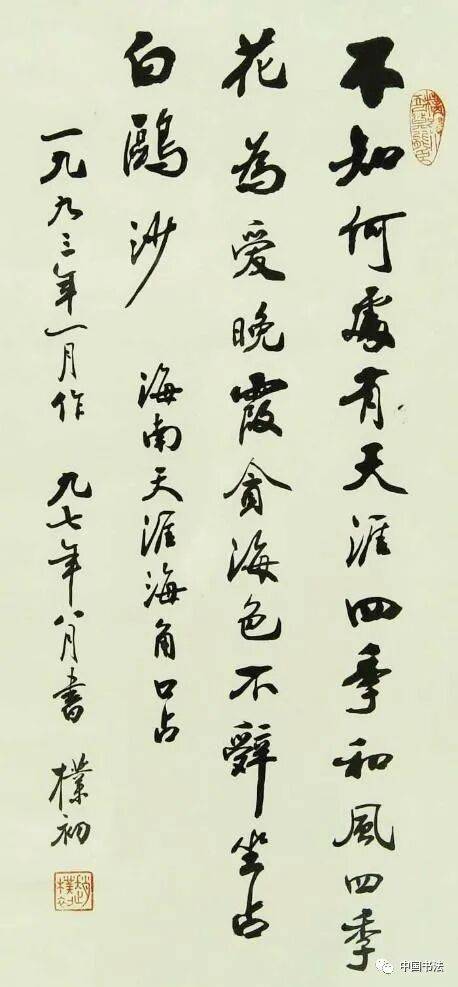 不知何處有天涯四季和風四季
花為愛晚霞貪海色不辭坐占
白鷗沙
海南天涯海角口占
一九九三年一月作 九七年八月書 樸初
趙樸初
中国书法